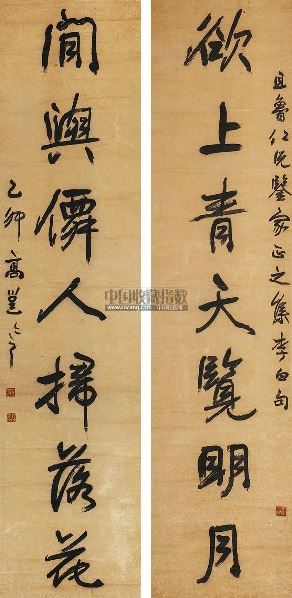 且魯仁兄鑒家正之集李白句
欲上青天覽明月
閒與僊人掃落花
乙卯高邕
中国收藏指数